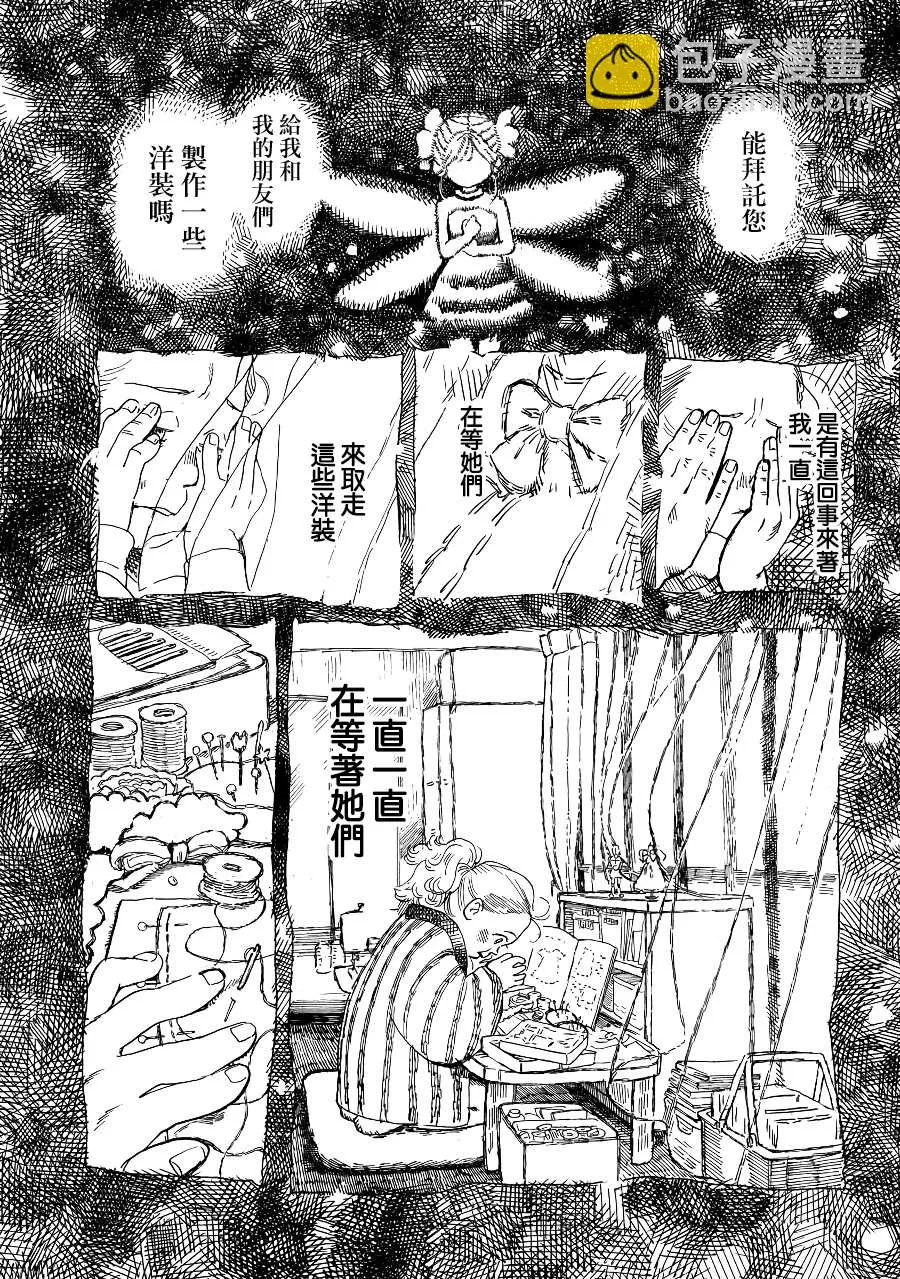 包子漫畫
baozimh.com
能拜託您
給我和
我的朋友們
製作一些
洋裝嗎
是有這回事來著
我一直
在等她們
來取走
這些洋裝
一直一直
在等著她們